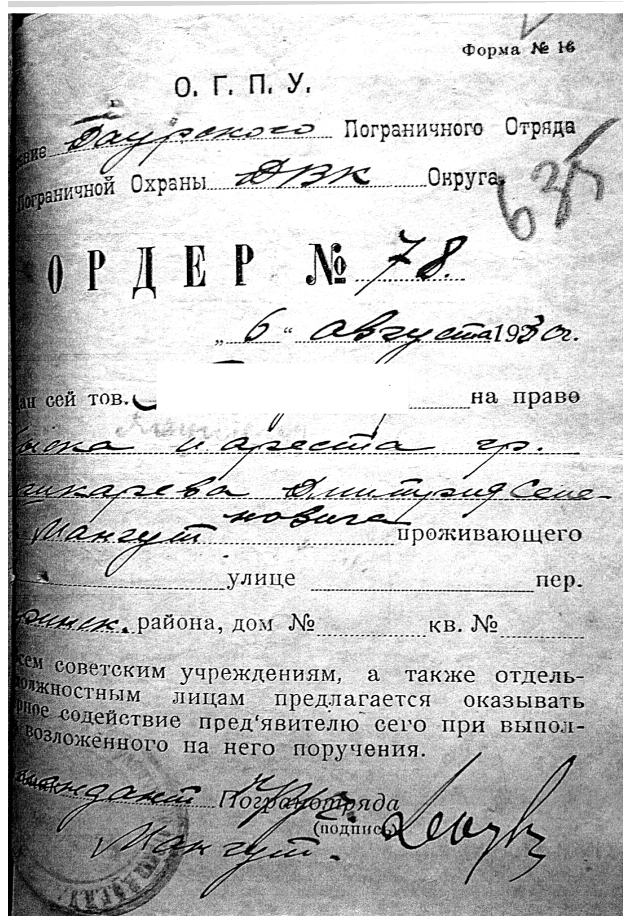 Форма № 16
О. Г. П. У.
ение Даурского Пограничного Отряда
Пограничной Охраны ДВК Округа.
635
ОРДЕР № 78.
„ 6 “ августа 1930 г.
ан сей тов. на право
ыска и ареста гр.
шкарева Дмитрия Семе-
новича
Мангут проживающего
улице пер.
ринск. района, дом № кв. №
сем советским учреждениям, а также отдель-
должностным лицам предлагается оказывать
рное содействие пред'явителю сего при выпол-
возложенного на него поручения.
Комендант Погранотряда
(подпись)
Мангут.